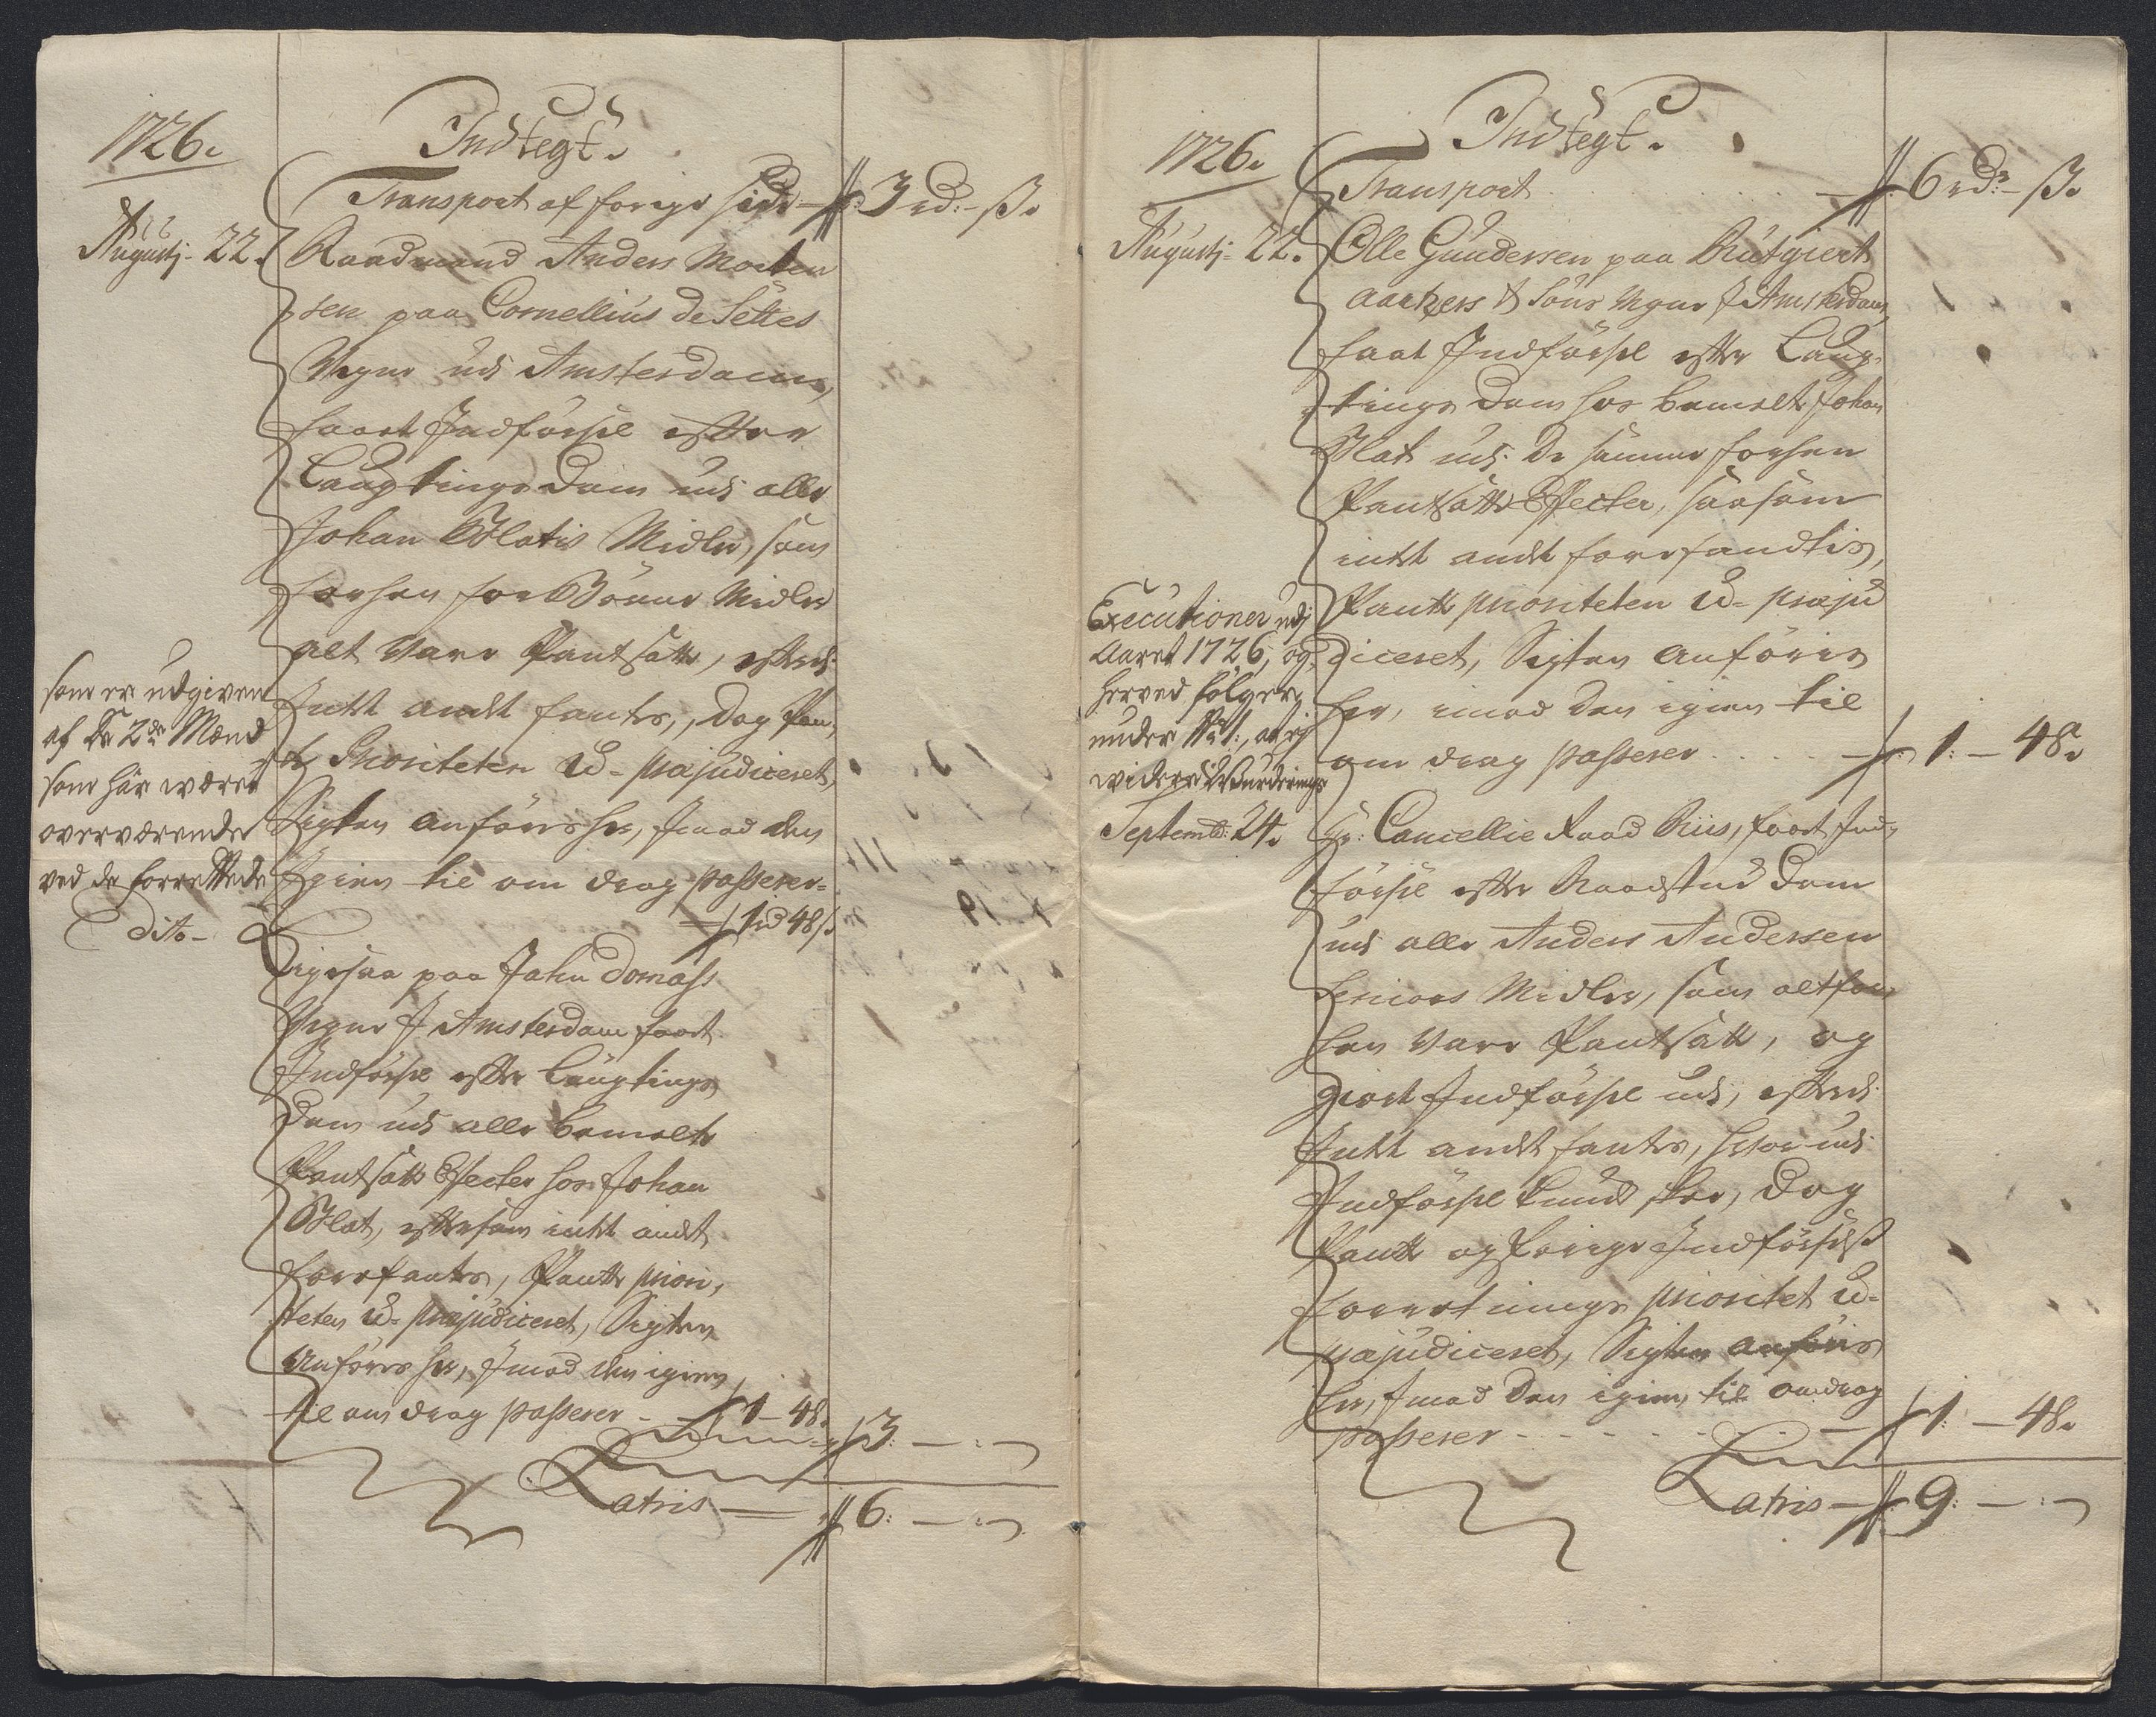 1726.
Indtegt.
Transport af forige side - 3 rd:- ß.
Augustj- 22.
Raadmand Anders Morten
sen paa Cornellius de Settes
Vegne udi Amsterdam,
faaet Indførsel efter
Laugtings Dom udi alle
Johan Blatis Midler, som
forhen for Børne Midler
alt vare Pantsatte, efterdi
Intet andt fantes, dog Pan,
te Prioriteten u- præjudiceret,
Sigten anføris her, Imod den
Igien til om drag passerer-
1 rd 48 ß.
som er udgiven
af de 2de Mænd
som har været
overværende
ved de forrettede
dito-
Ligesaa paa Jahn Domass
Vegne J Amsterdam faaet
Indførsel efter Laugtings
Dom udi alle bemelte
Pantsatte Effecter hos Johan
Blat, eftersom intet andt
forefantes, Pante priori,
teten u- præjudiceret, Sigten
Anføres her, Imod den igien
til om drag passerer - 1 - 48.
3: - : -
Latris - 6: - : -
1726.
Indtegt.
Transport - 6 rd:- ß.
Augustj- 22.
Olle Gundersen paa Rutgiert
Aartzers & Søns Vegne J Amsterdam,
faaet Indførsel efter Laug-
tings Dom hos bemelte Johan
Blat udi de samme forhen
Pantsatte Effecter, saasom
intet andt forefandtis,
Pante prioriteten u- præju
diceret, Sigten anføris
her, imod den igien til
om drag passerer - 1: - 48.
Executioner udj
Aaret 1726, og
herved følger
under No 1:, at ej
widere Wurderings
Septemb: 24.
Hr: Cancellie Raad Riis, faaet Ind-
førsel efter Raadstue Dom
udi alle Anders Andersen
Seniors Midler, som alt for-
hen vare Pantsatte, og
giort Indførsel udi, efterdi
Intet andt fantes, hvor udi
Indførsel kunde skee, dog
Pante og forige Indførsels
forretnings prioritet u-
præjudiceret, Sigten anføris
her, Imod den igien til omdrag
passerer - 1: - 48.
Latris - 9: - : -